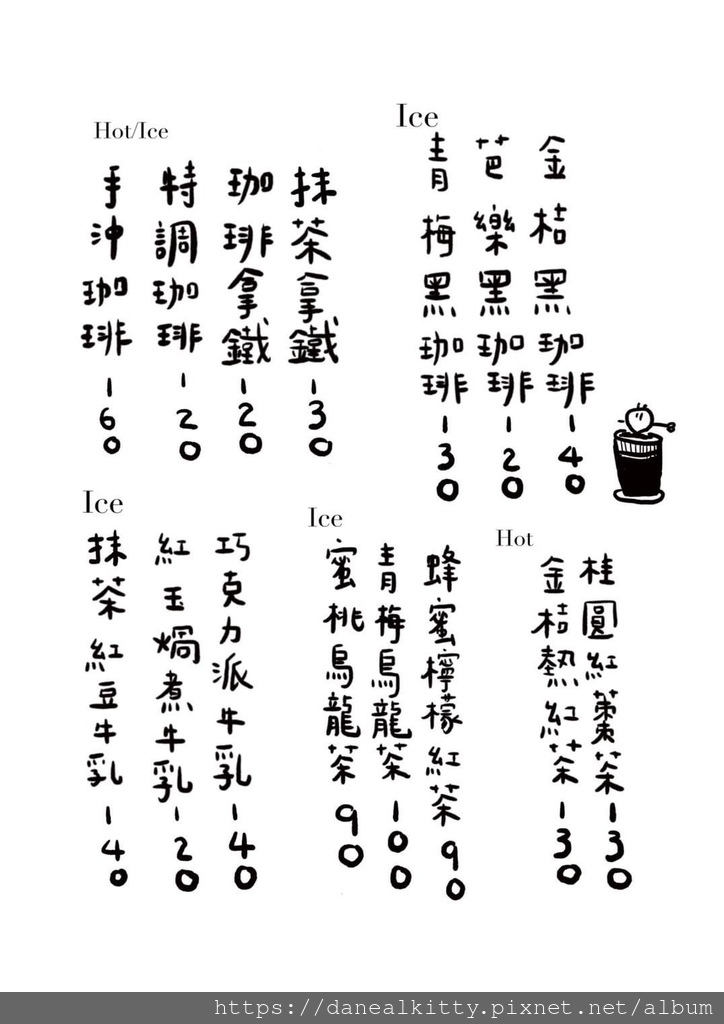 Hot/Ice
抹茶拿鐵130
珈琲拿鐵120
特調珈琲120
手沖珈琲160
Ice
金桔黑珈琲140
芭樂黑珈琲120
青梅黑珈琲130
Ice
巧克力派牛乳140
紅玉焗煮牛乳120
抹茶紅豆牛乳140
Ice
蜂蜜檸檬紅茶90
青梅烏龍茶100
蜜桃烏龍茶90
Hot
桂圓紅棗茶130
金桔熱紅茶130
https://danealkitty.pixnet.net/album